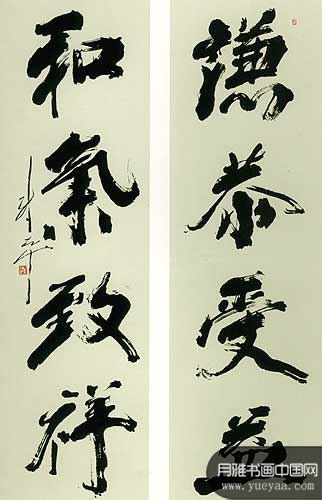 谦恭受益
和氣致祥
月雅书画中国网
www.yueyaa.com